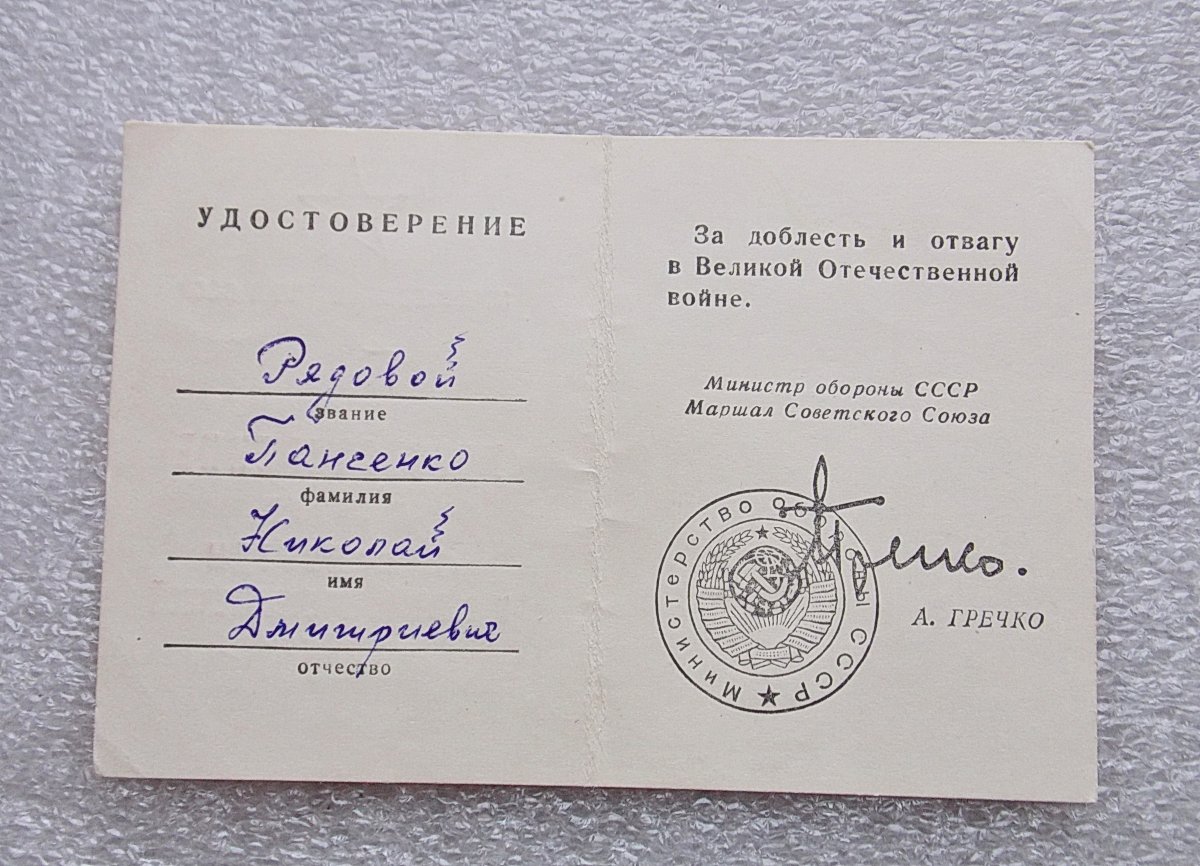 УДОСТОВЕРЕНИЕ
Рядовой
звание
Панченко
фамилия
Николай
имя
Дмитриевич
отчество
За доблесть и отвагу
в Великой Отечественной
войне.
Министр обороны СССР
Маршал Советского Союза
Министерство обороны СССР
Гречко.
А. ГРЕЧКО